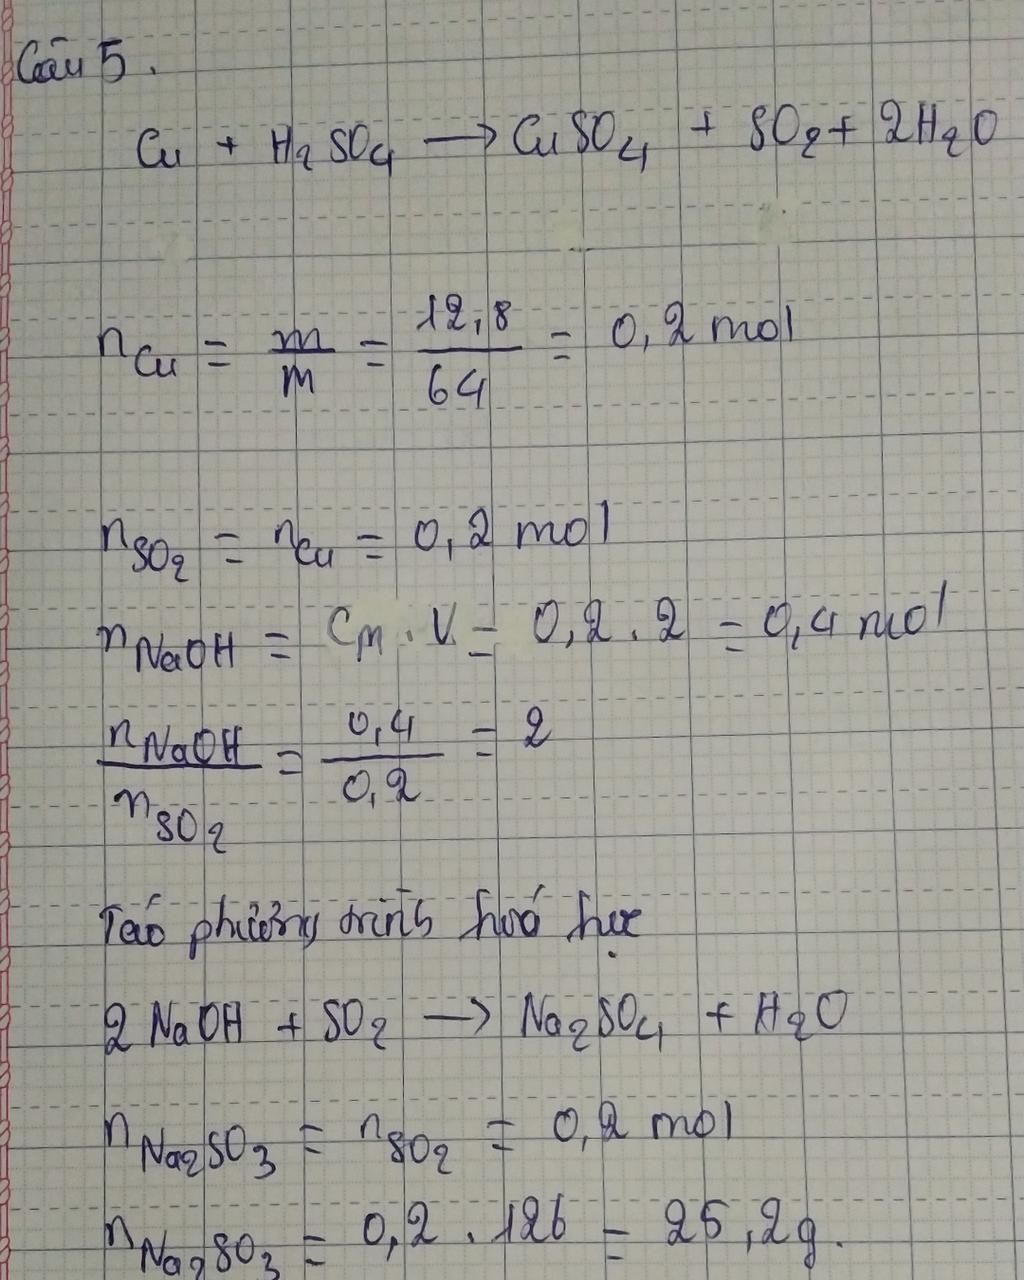 Câu 5.
Cu + H₂SO₄ → CuSO₄ + SO₂ + 2H₂O
n_Cu = m/m = 12,8/64 = 0,2 mol
n_SO₂ = n_Cu = 0,2 mol
n_NaOH = C_m . V = 0,2 . 2 = 0,4 mol
n_NaOH/n_SO₂ = 0,4/0,2 = 2
Tạo phương trình hoá học
2 NaOH + SO₂ → Na₂SO₄ + H₂O
n_Na₂SO₃ = n_SO₂ = 0,2 mol
n_Na₂SO₃ = 0,2 . 126 = 25,2g.